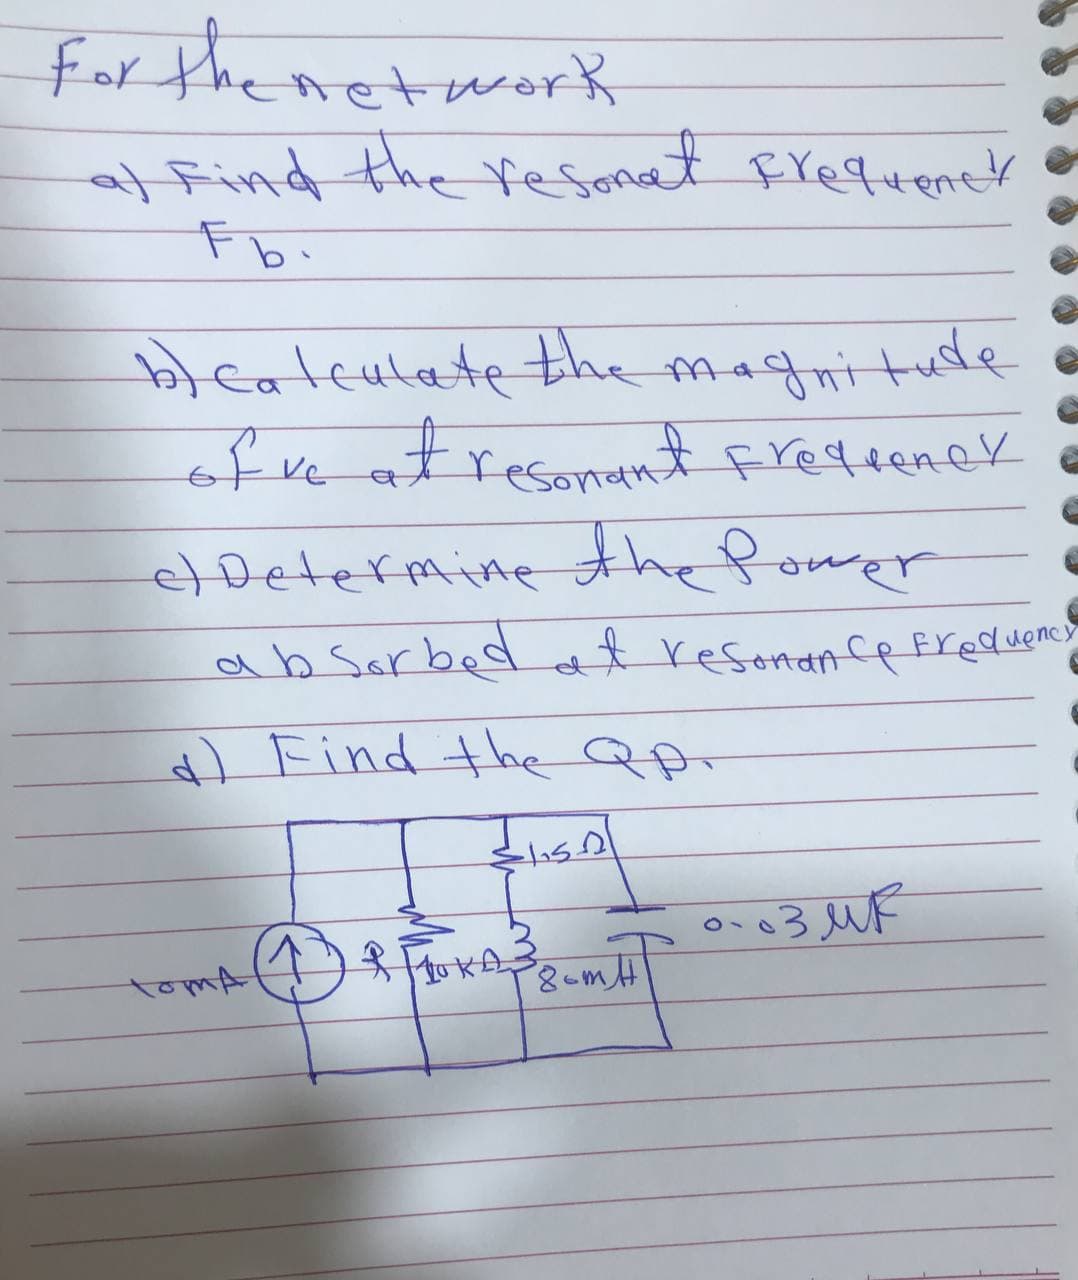 For the network
a) Find the resonat Frequency
Fb.
b) calculate the magnitude
of vc at resonant Frequency
c) Determine the Power
absorbed at resonance Frequency
d) Find the Qp.
1.5Ω
0.03 μF
10mA R 10KΩ 80mH